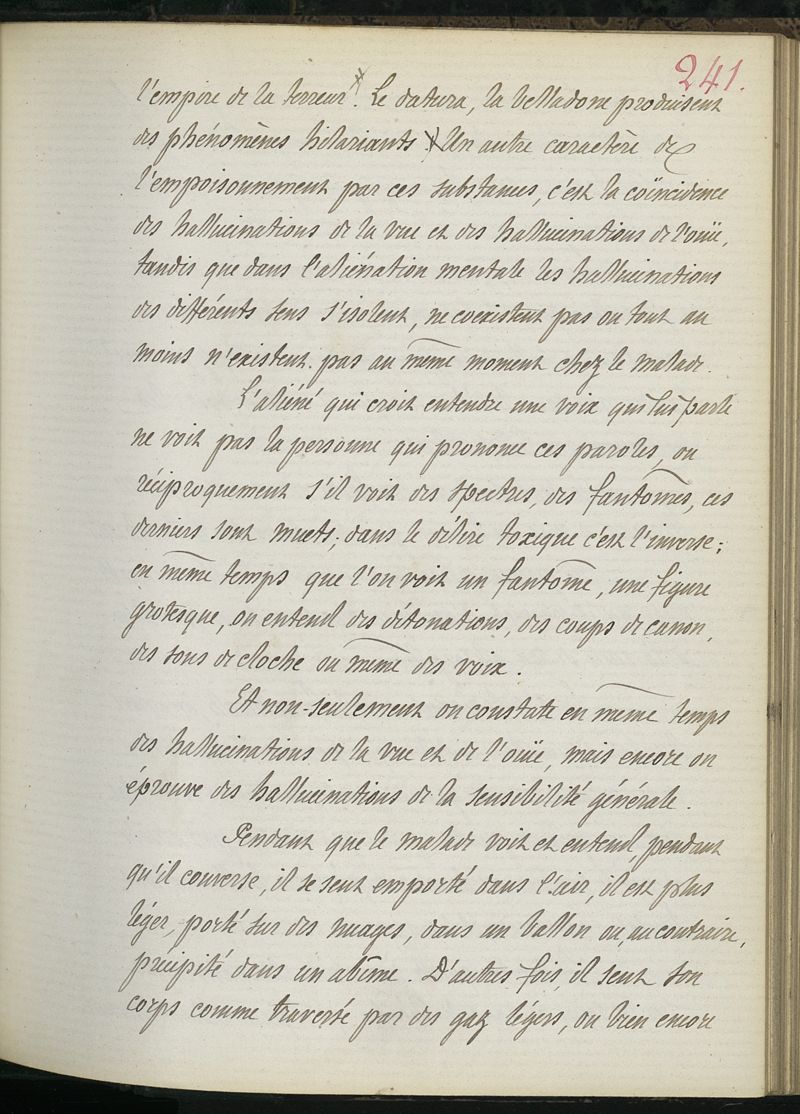 241.
l'empire de la terreur. Le datura, la belladone produisent
des phénomènes hilariants. Un autre caractère de
l'empoisonnement par ces substances, c'est la coïncidence
des hallucinations de la vue et des hallucinations de l'ouïe,
tandis que dans l'aliénation mentale les hallucinations
des différents sens s'isolent, ne coexistent pas ou tout au
moins n'existent pas au même moment chez le malade.
L'aliéné qui croit entendre une voix qui lui parle
ne voit pas la personne qui prononce ces paroles, ou
réciproquement s'il voit des spectres, des fantômes, ces
derniers sont muets; dans le délire toxique c'est l'inverse;
en même temps que l'on voit un fantôme, une figure
grotesque, on entend des détonations, des coups de canon,
des sons de cloche ou même des voix.
Et non-seulement on constate en même temps
des hallucinations de la vue et de l'ouïe, mais encore on
éprouve des hallucinations de la sensibilité générale.
Pendant que le malade voit et entend, pendant
qu'il converse, il se sent emporté dans l'air, il est plus
léger, porté sur des nuages, dans un ballon ou, au contraire,
précipité dans un abîme. D'autres fois, il sent son
corps comme traversé par des gaz légers, ou bien encore